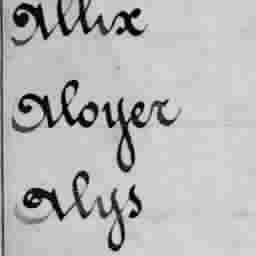 Allix
Aloyer
Alys